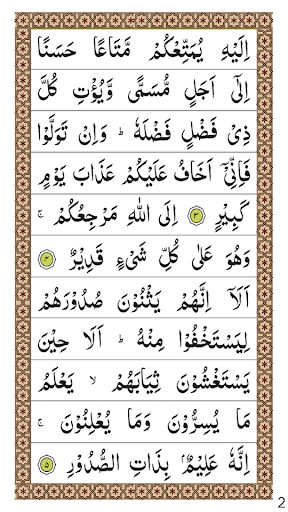 اِلَيْهِ يُمَتِّعْكُمْ مَّتَاعًا حَسَنًا
اِلٰۤى اَجَلٍ مُّسَمًّى وَّيُؤْتِ كُلَّ
ذِىْ فَضْلٍ فَضْلَهٗ ؕ وَاِنْ تَوَلَّوْا
فَاِنِّىْۤ اَخَافُ عَلَيْكُمْ عَذَابَ يَوْمٍ
كَبِيْرٍ ۝۳ اِلَى اللّٰهِ مَرْجِعُكُمْ ۚ
وَهُوَ عَلٰى كُلِّ شَىْءٍ قَدِيْرٌ ۝۴
اَلَاۤ اِنَّهُمْ يَثْنُوْنَ صُدُوْرَهُمْ
لِيَسْتَخْفُوْا مِنْهُ ؕ اَلَا حِيْنَ
يَسْتَغْشُوْنَ ثِيَابَهُمْ ۙ يَعْلَمُ
مَا يُسِرُّوْنَ وَمَا يُعْلِنُوْنَ ۚ
اِنَّهٗ عَلِيْمٌۢ بِذَاتِ الصُّدُوْرِ ۝۵
2